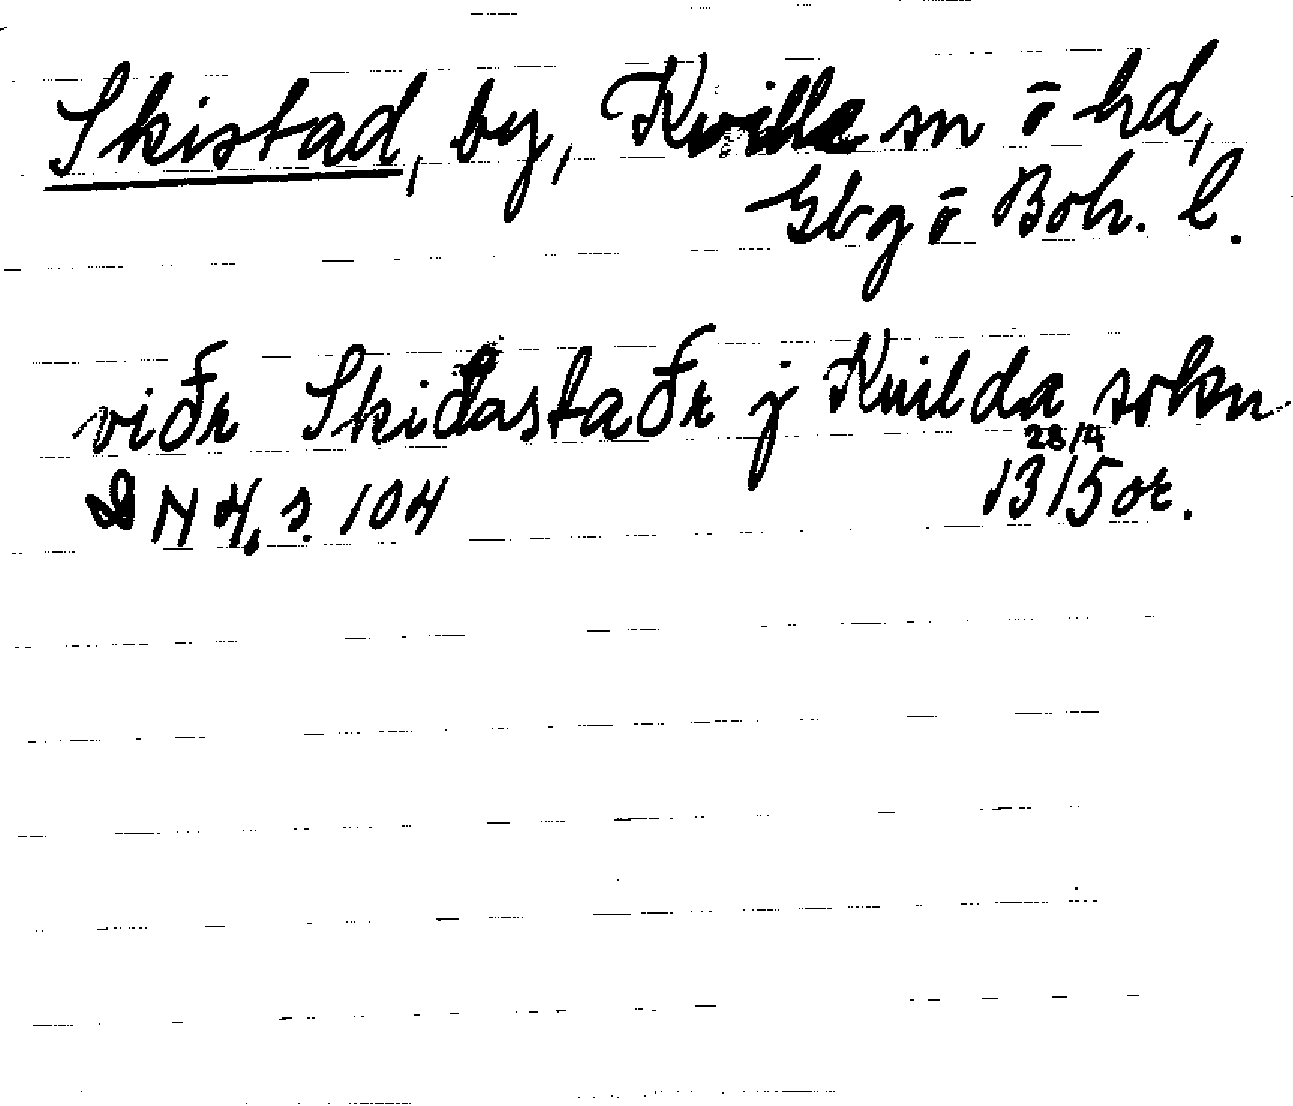 Skistad, by, Kville sn ō hd,
Gbg ō Boh. l.
viðr Skiðastaðr j Kuilda sokn
28/4
DN 4, s. 104 1315 or.